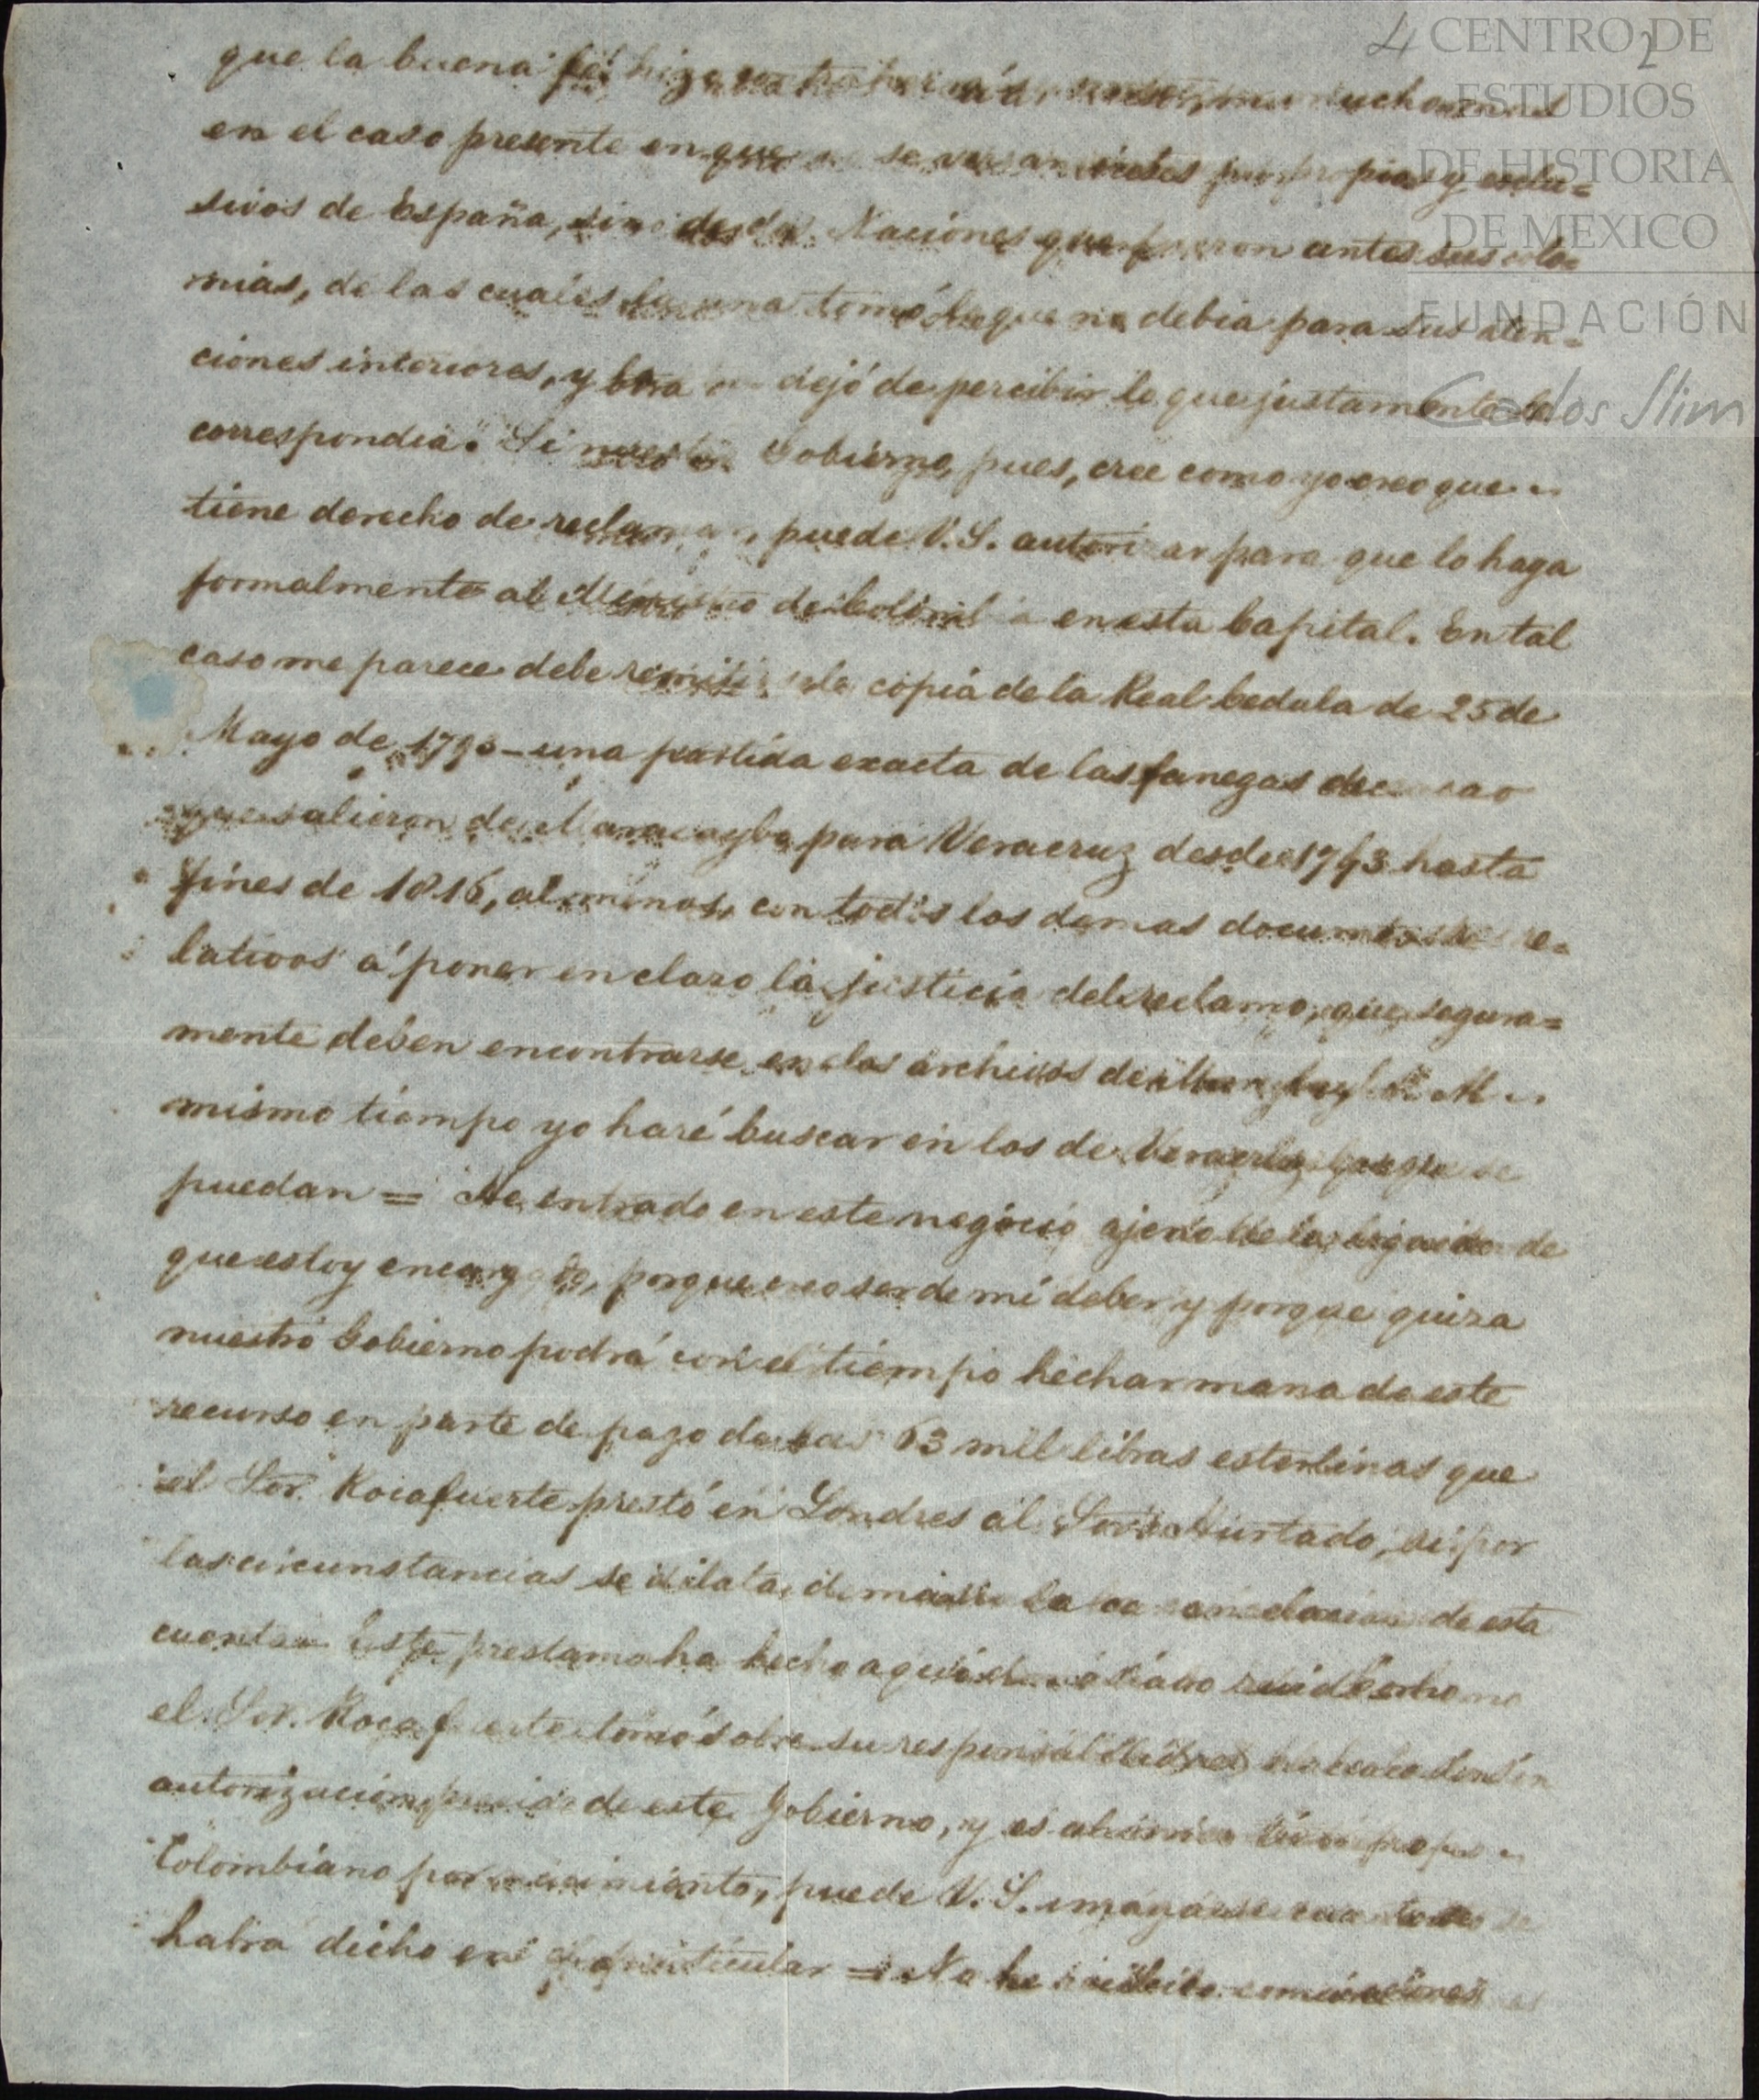 4 2
CENTRO DE
ESTUDIOS
DE HISTORIA
DE MEXICO
FUNDACIÓN
Carlos Slim
que la buena fé hizo mucho
en el caso presente en que no se versan y esclu=
sivos de España, sino de dos Naciones que fueron antes sus colo=
nias, de las cuales la una tomó lo que no debia para sus aten=
ciones interiores, y otra dejó de percibir lo que justamente le
correspondia. Si nuestro Gobierno, pues, cree como yo creo que
tiene derecho de reclamar, puede V.S. autorizar para que lo haga
formalmente al Ministro de Colombia en esta Capital. En tal
caso me parece debe remitirsele copia de la Real Cedula de 25 de
Mayo de 1793 – una partida exacta de las fanegas de cacao
que salieron de Maracaybo para Veracruz desde 1793 hasta
fines de 1816, al menos, con todos los demas documentos re=
lativos á poner en claro la justicia del reclamo, que segura=
mente deben encontrarse en los archivos de Al
mismo tiempo yo haré buscar en los de Veracruz los que se
puedan = He entrado en este negocio ajeno de la de
que estoy encargado, porque creo ser de mi deber y porque quiza
nuestro Gobierno podrá con el tiempo hechar mano de este
recurso en parte de pago de las 63 mil libras esterlinas que
el Sor. Rocafuerte prestó en Londres al Sor. Hurtado, si por
las circunstancias se dilata la de esta
cuenta. Este prestamo ha hecho aqui ruido como
el Sor. Rocafuerte tomó sobre su responsabilidad sin
autorizacion previa de este Gobierno, y es
Colombiano por nacimiento, puede V.S. imaginarse cuanto se
habrá dicho en el particular = No he